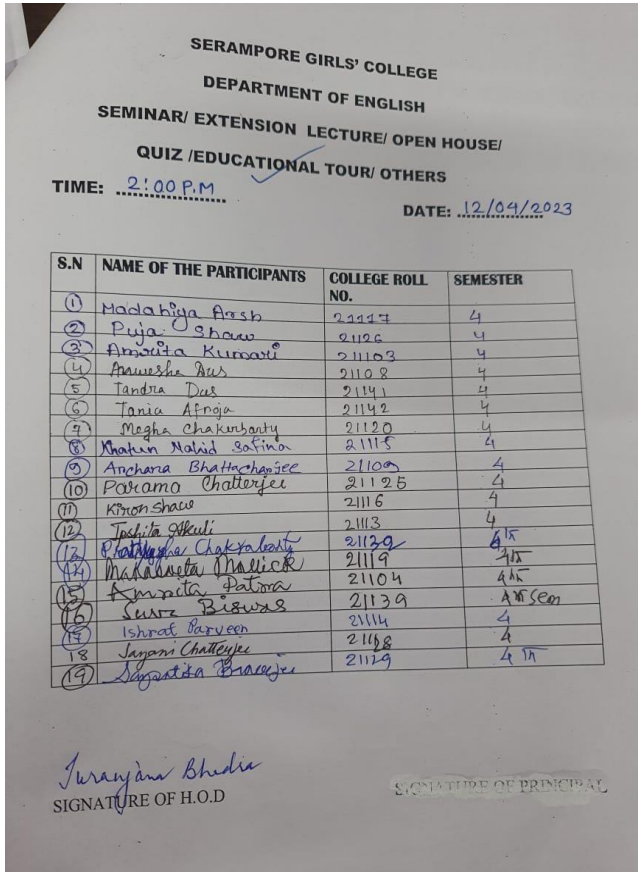 SERAMPORE GIRLS' COLLEGE
DEPARTMENT OF ENGLISH
SEMINAR/ EXTENSION LECTURE/ OPEN HOUSE/
QUIZ /EDUCATIONAL TOUR/ OTHERS
TIME: 2:00 P.M
DATE: 12/04/2023
S.N NAME OF THE PARTICIPANTS COLLEGE ROLL NO. SEMESTER
1 Madahiya Arsh 21117 4
2 Puja Shaw 21126 4
3 Amrita Kumari 211103 4
4 Anwesha Das 21108 4
5 Tandra Das 21141 4
6 Tania Afroja 21142 4
7 Megha Chakurbarty 21120 4
8 Khatun Nahid Safina 21115 4
9 Archana Bhattacharjee 21109 4
10 Parama Chatterjee 21125 4
11 Kiron Shaw 21116 4
12 Joshita 21113 4
13 Chakraborty 21132 4th
14 Mallick 21119 4th
15 Amrita Patra 21104 4th
16 Biswas 21139 4th Sem
17 Ishrat Parveen 21114 4
18 Janani Chatterjee 4
19 Sayantika Banerjee 21129 4th
Bhadra
SIGNATURE OF H.O.D
SIGNATURE OF PRINCIPAL